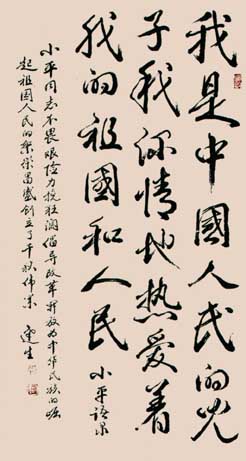 我是中國人民的兒
子我深情地热爱着
我的祖國和人民 小平語录
小平同志不畏艰险力挽狂澜倡导改革开放为中华民族的崛
起祖國人民的繁荣昌盛创立了千秋伟業